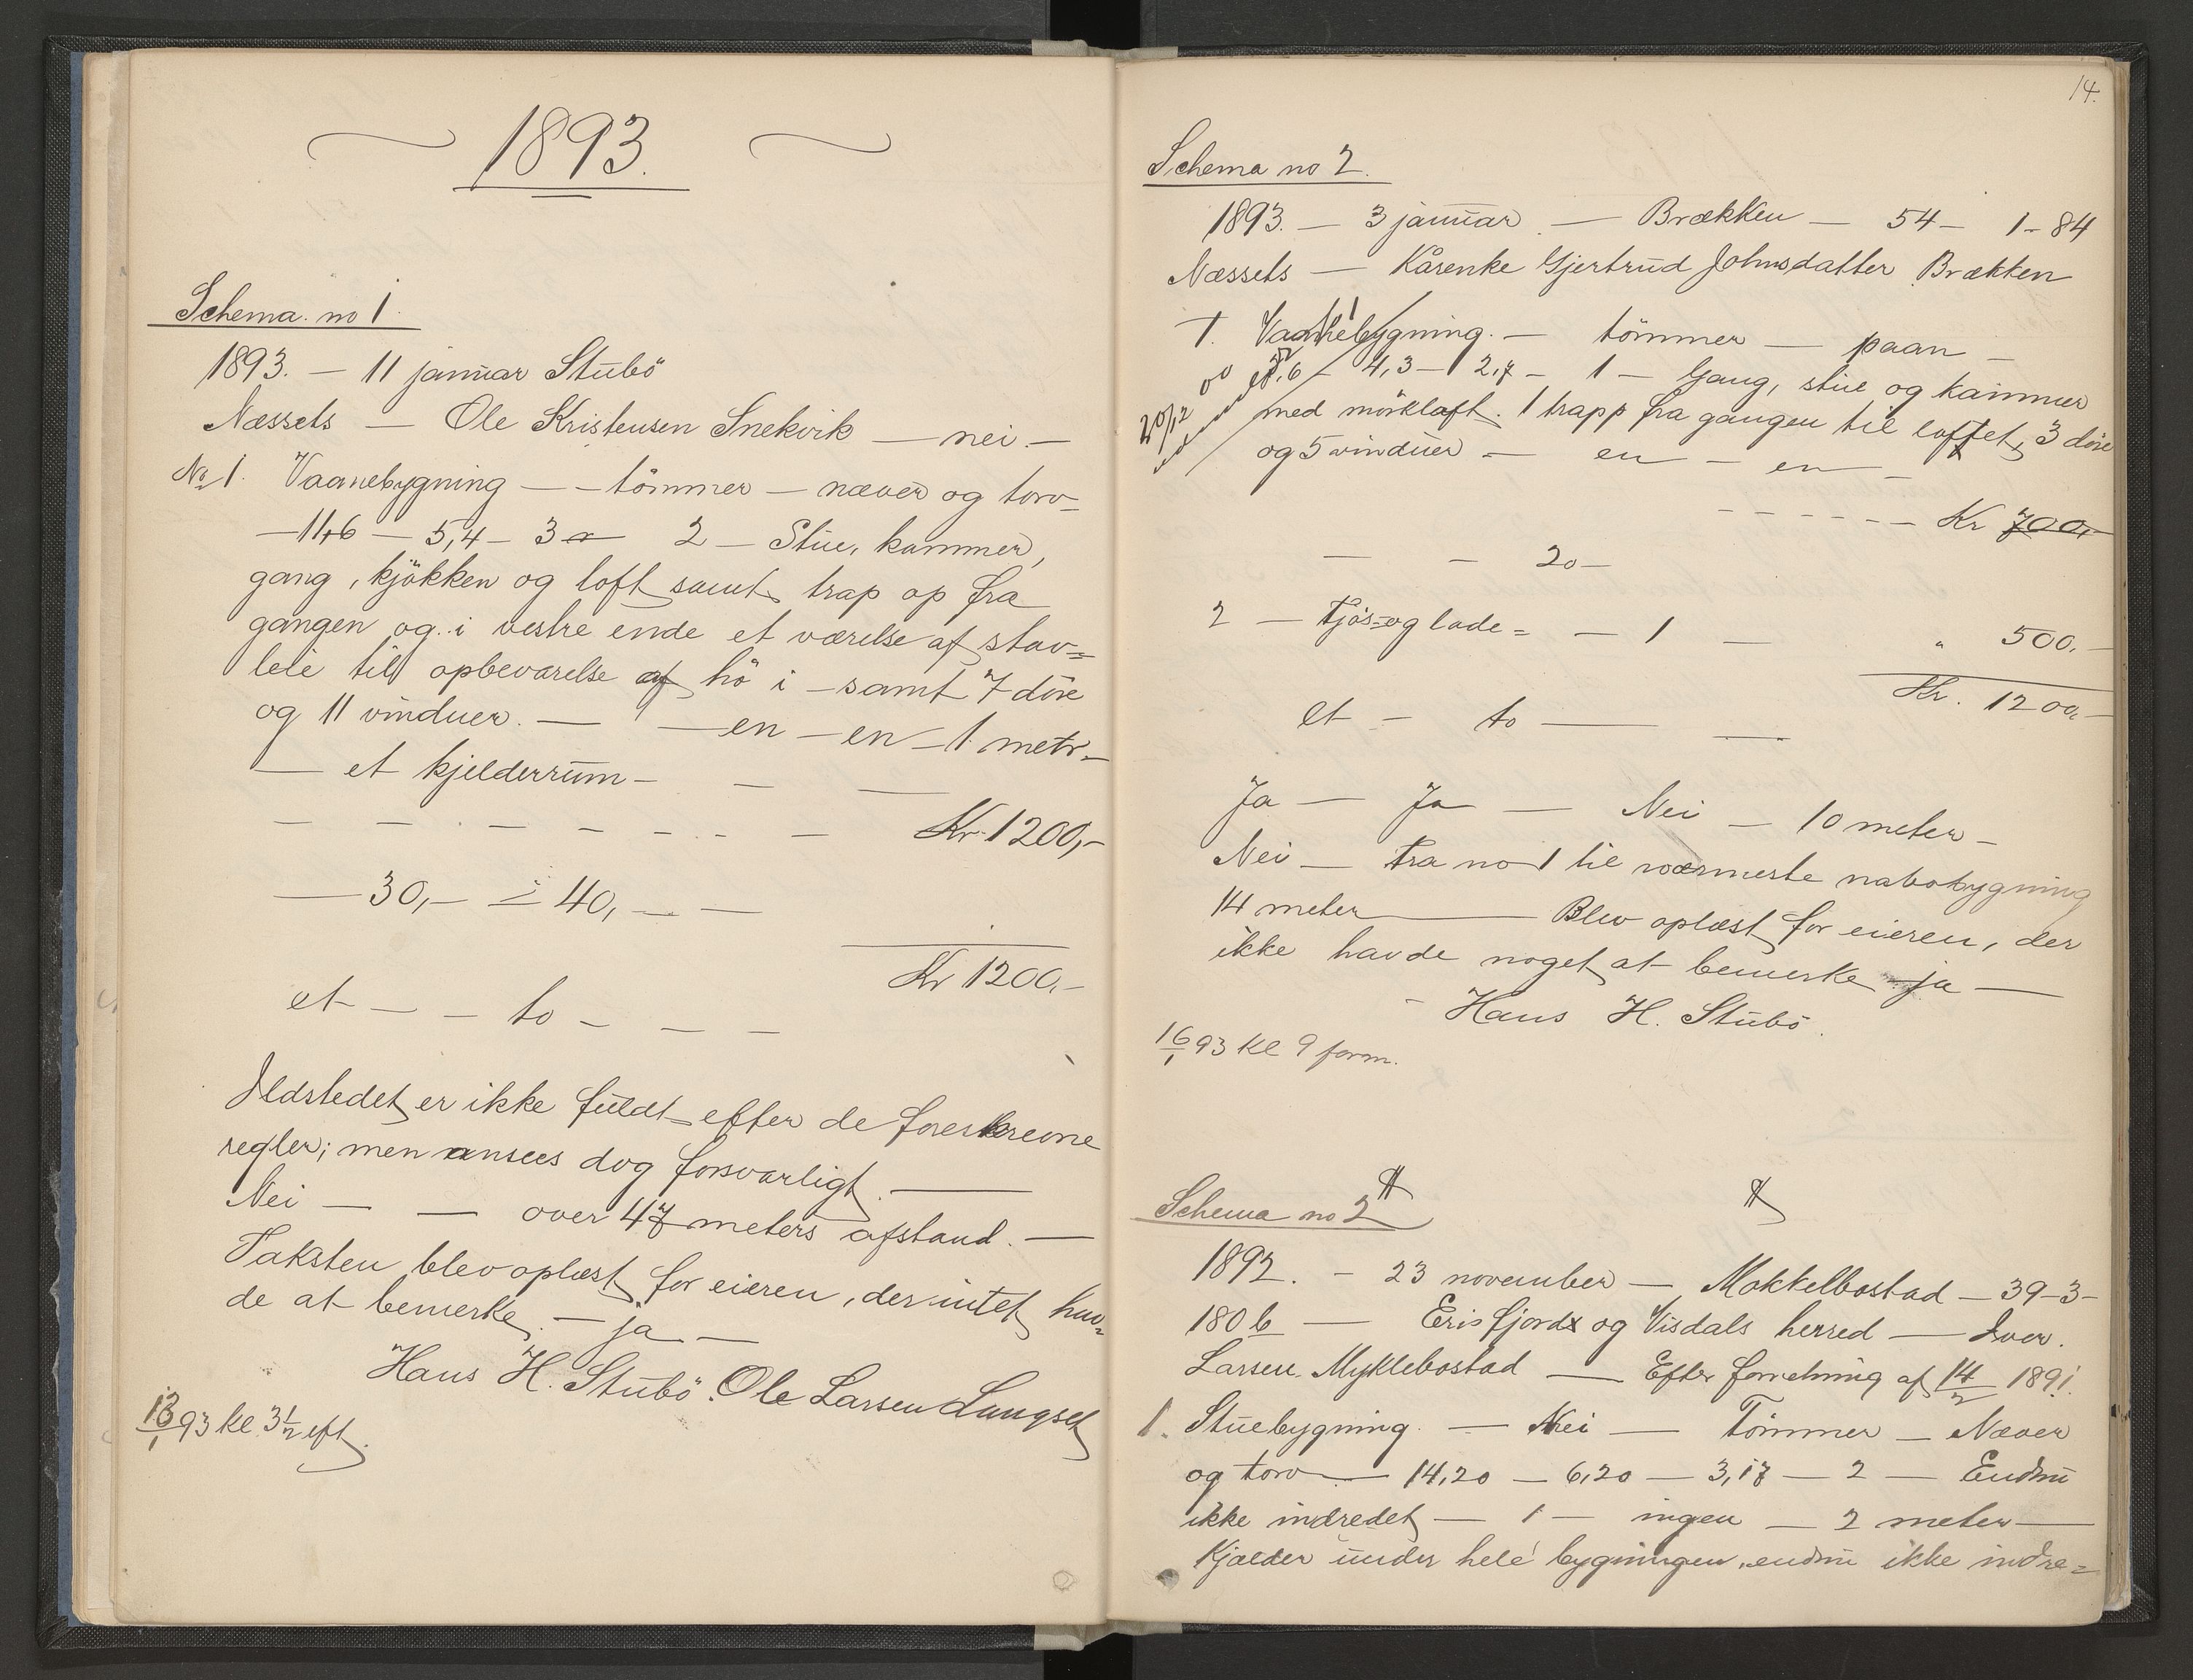 1893.
Schema no 1.
1893. — 11 januar Stubö
Næssets — Ole Kristensen Snekvik — nei. —
No 1. Vaanebygning — — tömmer — næver og torv=
— 11,6 — 5,4 — 3 — 2 — Stue, kammer,
gang, kjökken og loft samt trap op fra
gangen og i vestre ende et værelse af stav=
leie til opbevarelse af hö i — samt 7 döre
og 11 vinduer. — — en — en — 1 metr. —
— et kjelderrum — — —
— — — — — — — — Kr 1200,—
— 30,— — 40,— —
Kr 1200,—
et — — to — — —
Ildstedet er ikke fuldt efter de foreskrevne
regler; men ansees dog forsvarligt. —
Nei — — over 47 meters afstand. —
Taksten blev oplæst for eieren, der intet hav=
de at bemerke. — ja —
Hans H. Stubö. Ole Larsen Langset
13/1 93 kl 3½ eft.
14.
Schema no 2.
1893. — 3 januar. — Brækken — 54 — 1 — 84
Næssets — Karenke Gjertrud Johnsdatter Brækken
1. Vaanebygning. — tömmer — paan —
20/12
6 — 4,3 — 2,7 — 1 — Gang, stue og kammer
med mörkloft. 1 trapp fra gangen til loftet, 3 döre
og 5 vinduer — en — en —
— — — — — — Kr 700,—
— — 20 —
2 — Fjös= og lade= — 1 — " 500,—
Kr. 1200,—
et — to — —
Ja — Ja — Nei — 10 meter —
Nei — Fra no 1 til nærmeste nabobygning
14 meter — Blev oplæst for eieren, der
ikke havde noget at bemerke — ja —
Hans H. Stubö.
16/1 93 kl 9 form.
Schema no 2
1892. — 23 november — Mokkelbostad — 39—3—
180 b — Erisfjords og Visdals herred — Iver
Larsen Myklebostad — Efter forretning af 14/2 1891.
1. Stuebygning. — Nei — Tömmer — Næver
og torv — 14,20 — 6,20 — 3,17 — 2 — Endnu
ikke indredet — 1 — ingen — 2 meter —
Kjælder under hele bygningen, endnu ikke indre=